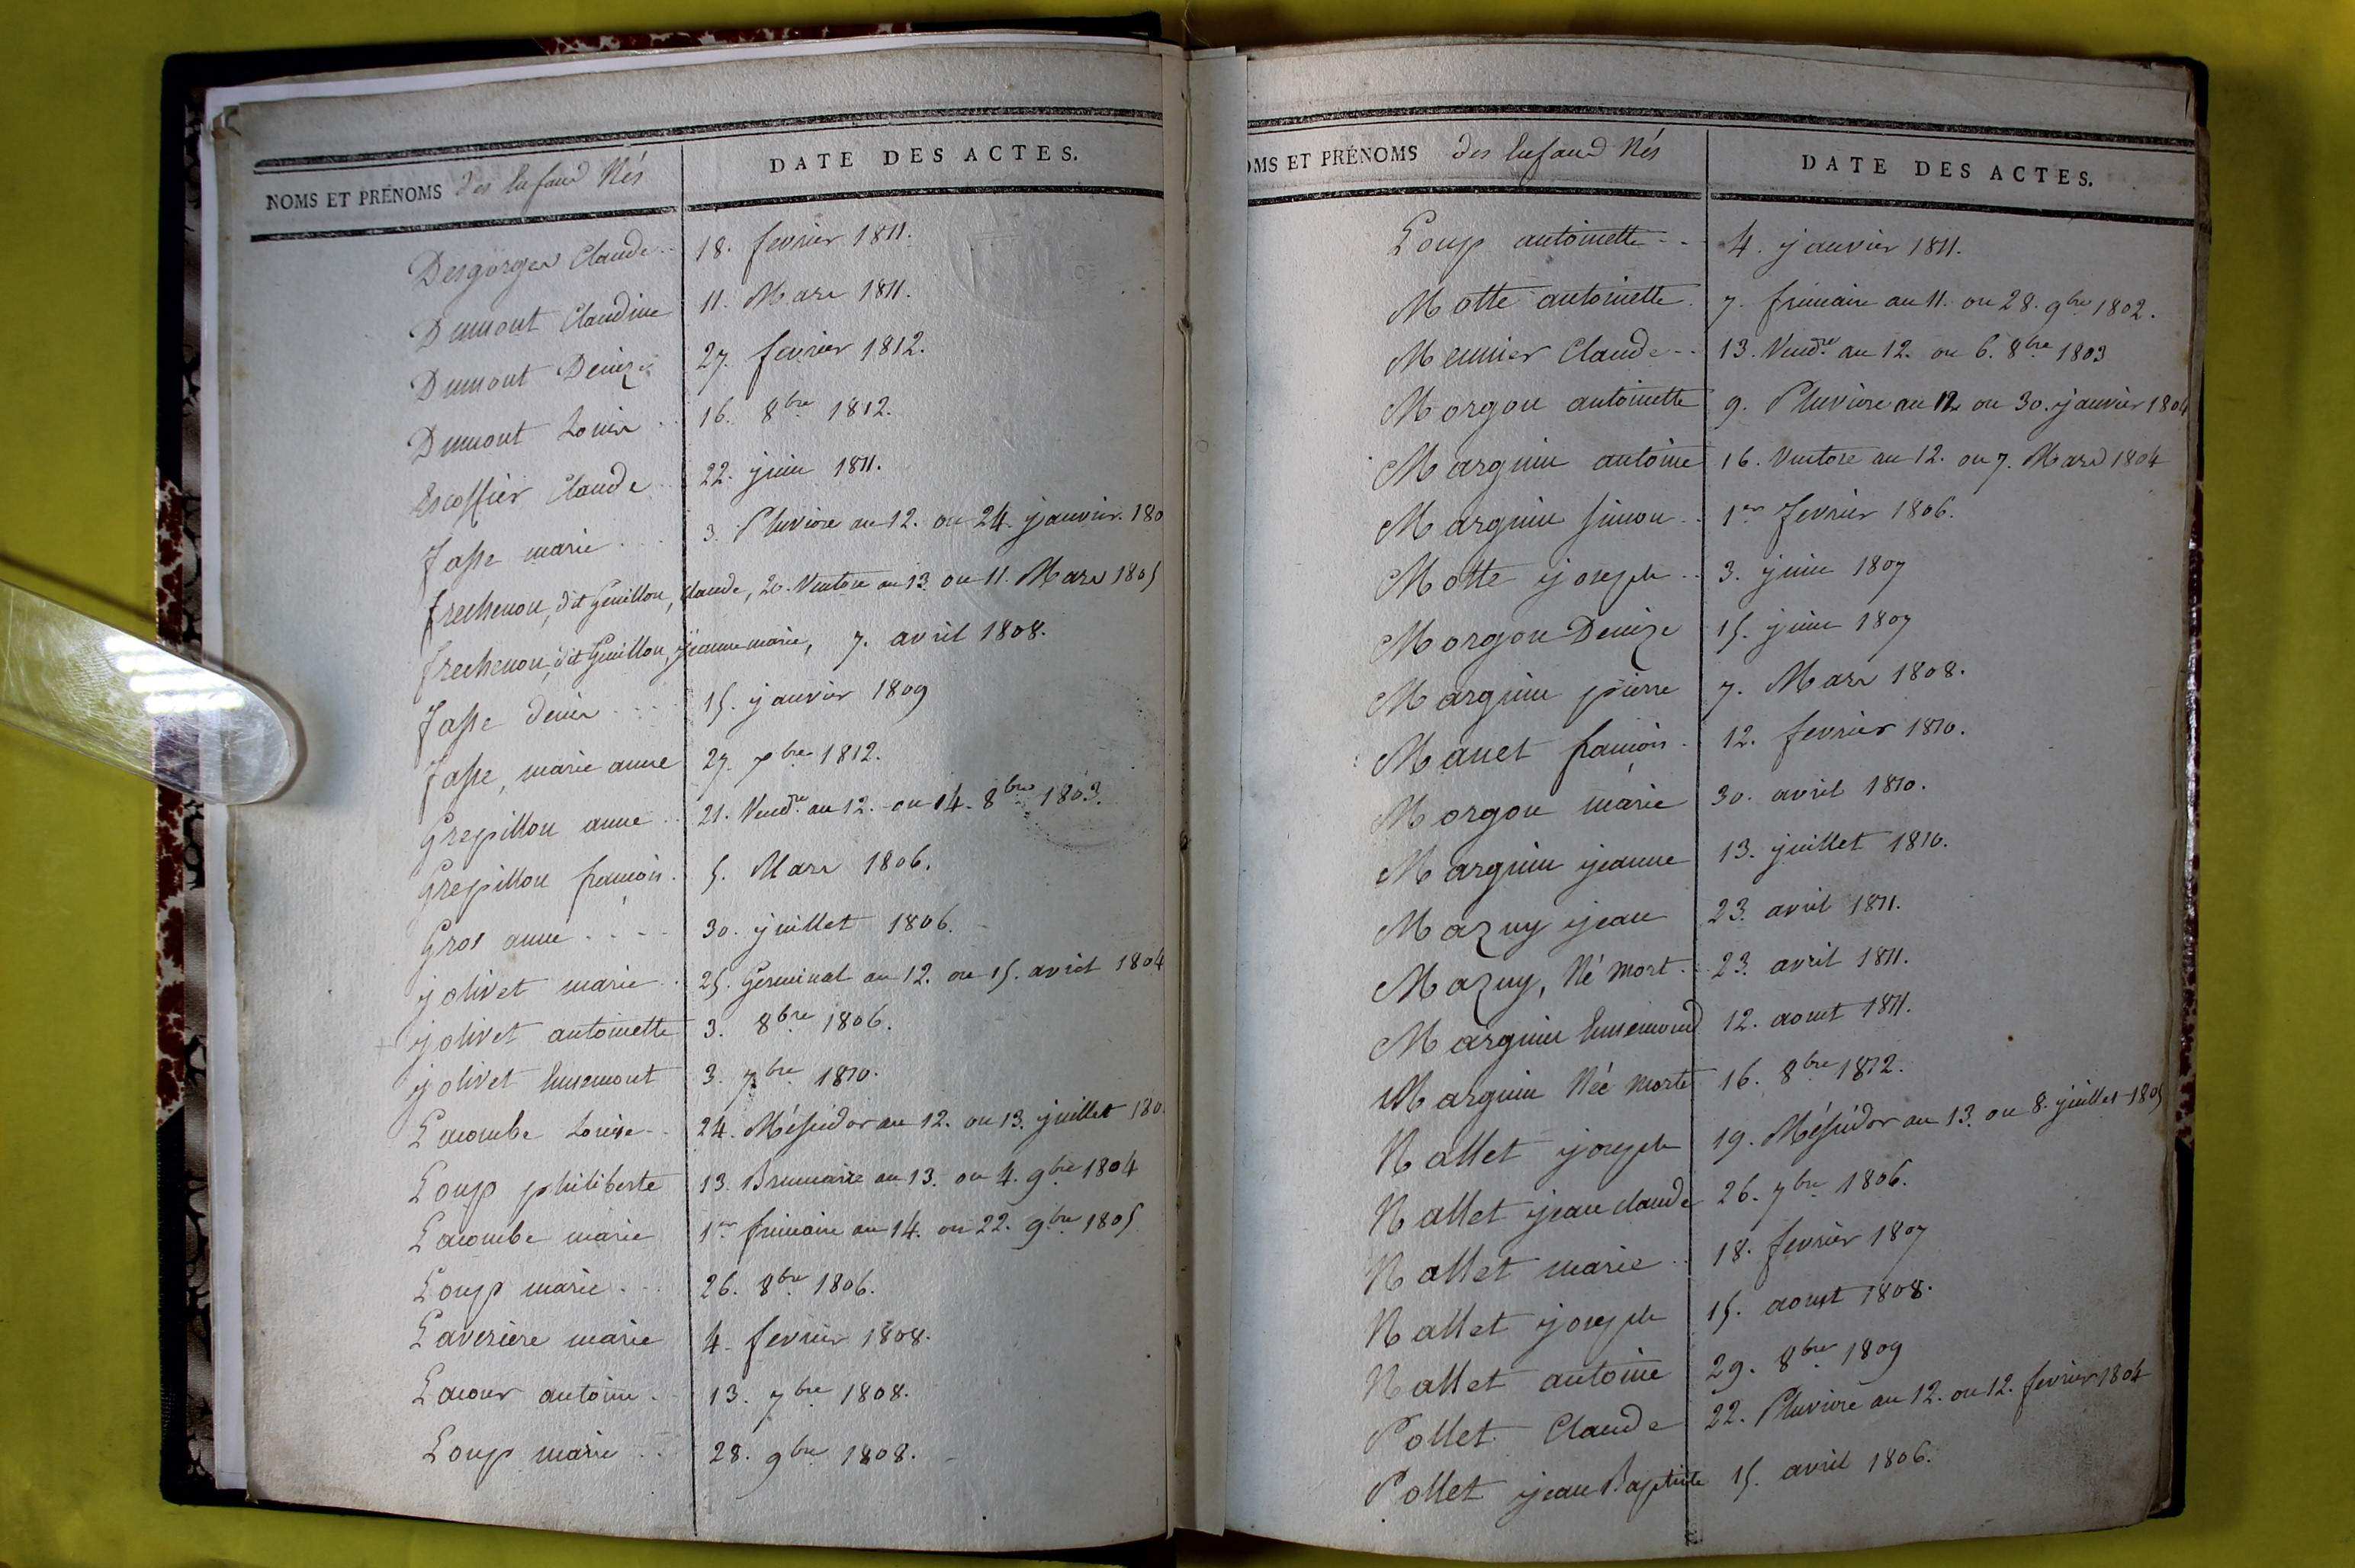 NOMS ET PRÉNOMS des Enfans Nés
DATE DES ACTES.
Desgorges Claude .. 18. fevrier 1811.
Dumont Claudine 11. Mars 1811.
Dumont Denize 27. fevrier 1812.
Dumont Louise .. 16. 8bre 1812.
Escoffier Claude .. 22. juin 1811.
fasse marie ... 3. Pluviose an 12. ou 24. janvier. 180
frechenon, dit Genillon, Claude, 20. Ventose an 13. ou 11. Mars 1805
frechenon, dit Genillon, jeanne marie, 7. avril 1808.
fasse denis .... 15. janvier 1809
fasse, marie anne 27. 7bre 1812.
Grepillon anne .. 21. Vendre an 12. ou 14. 8bre 1803.
Grepillon francois. 5. Mars 1806.
Gros anne .... 30. juillet 1806.
jolivet marie .. 25. Germinal an 12. ou 15. avril 1804
jolivet antoinette 3. 8bre 1806.
jolivet Ennemont 3. 7bre 1810.
Lacombe Louise .. 24. Messidor an 12. ou 13. juillet 180
Loup philiberte 13. Brumaire an 13. ou 4. 9bre 1804
Lacombe marie 1er frimaire an 14. ou 22. 9bre 1805
Loup marie ... 26. 8bre 1806.
Laverriere marie 4. fevrier 1808.
Lacour antoine .. 13. 7bre 1808.
Loup marie ... 28. 9bre 1808.
OMS ET PRÉNOMS des Enfans Nés
DATE DES ACTES.
Loup antoinette .. 4. janvier 1811.
Motte antoinette. 7. frimaire an 11. ou 28. 9bre 1802.
Meunier Claude .. 13. Vendre an 12. ou 6. 8bre 1803
Morgon antoinette 9. Pluviose an 12 ou 30. janvier 1804
Marguin antoine 16. Ventose an 12. ou 7. Mars 1804
Marguin simon .. 1er fevrier 1806.
Motte joseph .. 3. juin 1807
Morgon Denize 15. juin 1807
Marguin pierre 7. Mars 1808.
Manet francois . 12. fevrier 1810.
Morgon marie 30. avril 1810.
Marguin jeanne 13. juillet 1810.
Mazuy jean 23. avril 1811.
Mazuy, Né mort .. 23. avril 1811.
Marguin Ennemond 12. aout 1811.
Marguin Née morte 16. 8bre 1812.
Nallet joseph 19. Messidor an 13. ou 8. juillet 1805
Nallet jean claude 26. 7bre 1806.
Nallet marie .. 18. fevrier 1807
Nallet joseph 15. aoust 1808.
Nallet antoine 29. 8bre 1809
Pollet Claude 22. Pluviose an 12. ou 12. fevrier 1804
Pollet jean Baptiste 15. avril 1806.